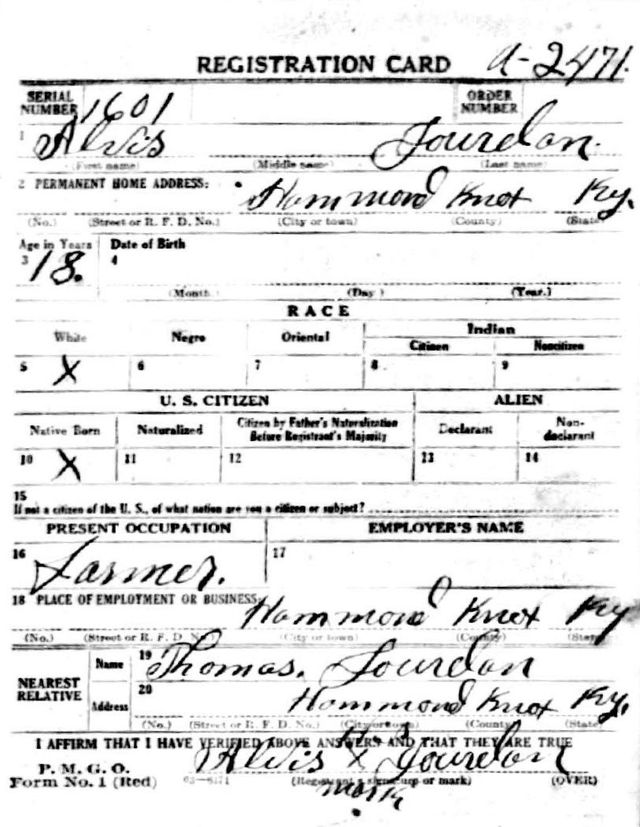 REGISTRATION CARD A-2471.
SERIAL NUMBER 1601 ORDER NUMBER
1 Alvis Jourdan.
(First name) (Middle name) (Last name)
2 PERMANENT HOME ADDRESS: Hammond Knox Ky.
(No.) (Street or R. F. D. No.) (City or town) (County) (State)
Age in Years Date of Birth
3 18. 4
(Month.) (Day.) (Year.)
RACE
White Negro Oriental Indian
Citizen Noncitizen
5 X 6 7 8 9
U. S. CITIZEN ALIEN
Native Born Naturalized Citizen by Father's Naturalization Before Registrant's Majority Declarant Non-declarant
10 X 11 12 13 14
15
If not a citizen of the U. S., of what nation are you a citizen or subject?
PRESENT OCCUPATION EMPLOYER'S NAME
16 Farmer. 17
18 PLACE OF EMPLOYMENT OR BUSINESS: Hammond Knox Ky
(No.) (Street or R. F. D. No.) (City or town) (County) (State)
NEAREST RELATIVE Name 19 Thomas. Jourdan
Address 20 Hammond Knox Ky.
(No.) (Street or R. F. D. No.) (City or town) (County) (State)
I AFFIRM THAT I HAVE VERIFIED ABOVE ANSWERS AND THAT THEY ARE TRUE
His
P. M. G. O. Alvis X Jourdan
Form No. 1 (Red) 03-6171 (Registrant's signature or mark) (OVER)
mark